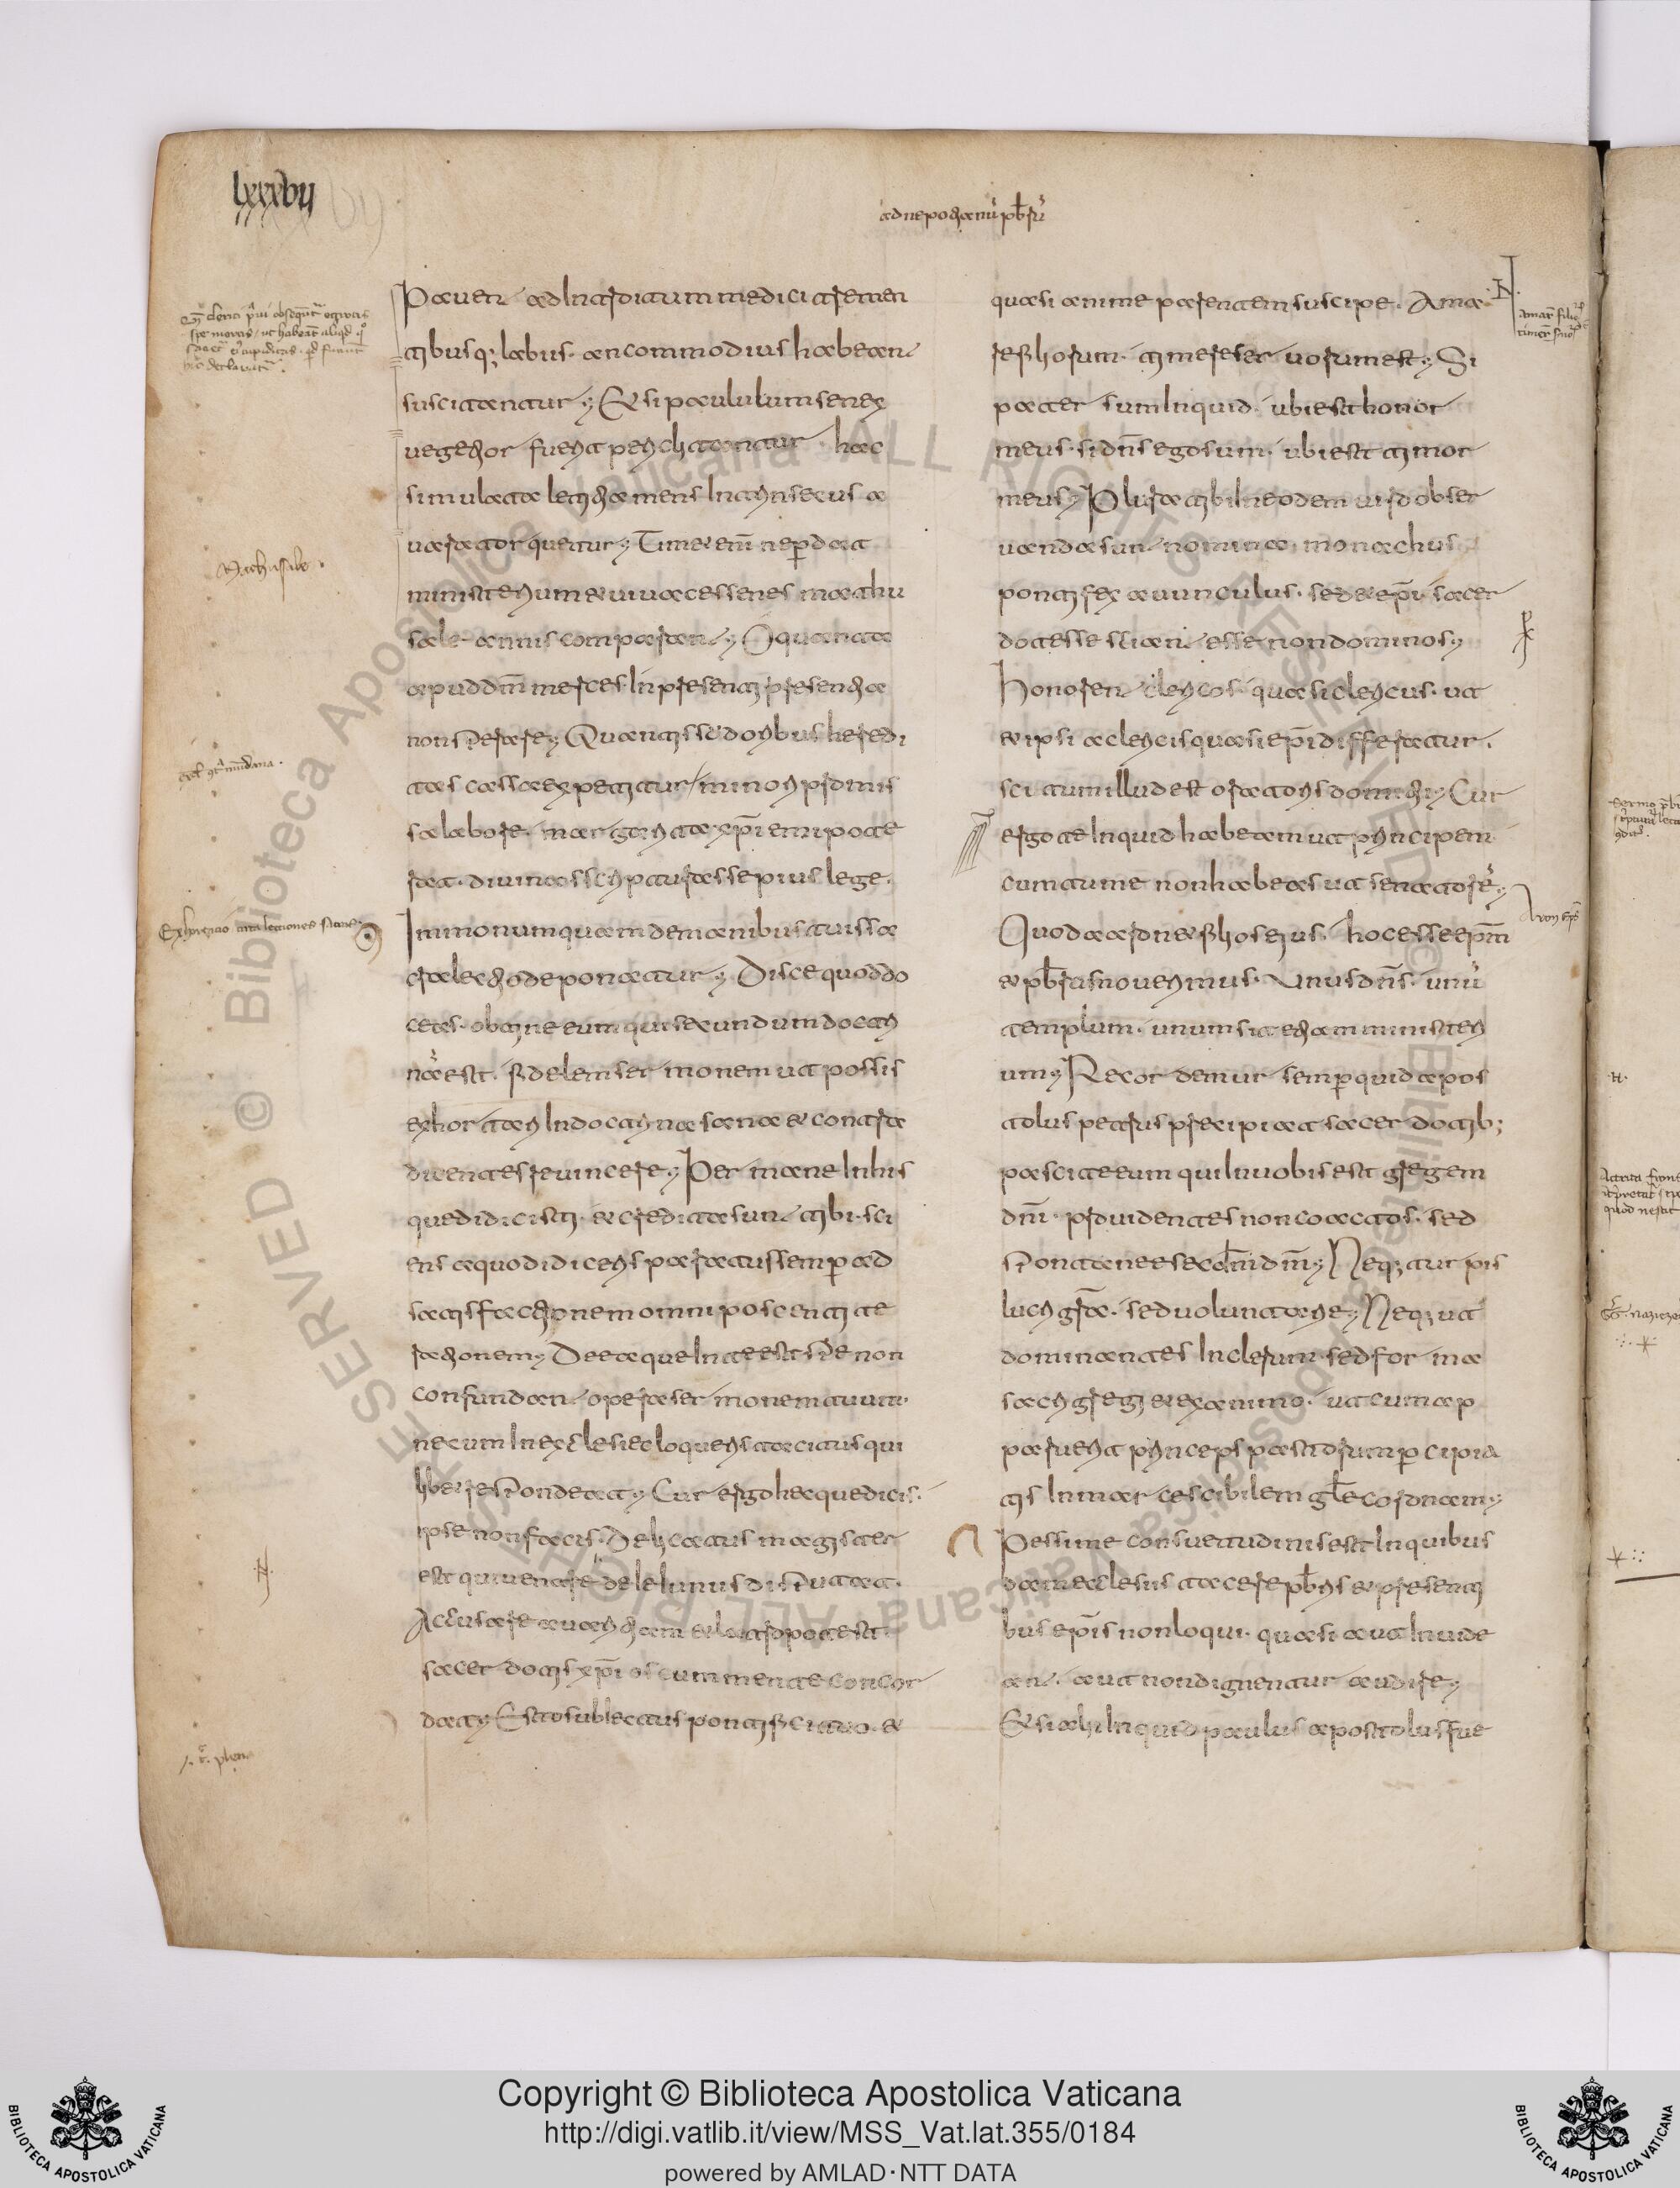 lxxxvii
ad nepotianũ p̅b̅rũ
Pavent ad introitum medici tremen
tibusq; labiis. an commodius habeant
sciscitantur; Et si paululum senex
vegetior fuerit periclitantur. hec
simulata letitia mens intrinsecus a
vara torquetur; Timet eni̅ ne perdat
ministerium et vivaces senes mathu
sale annis comparant; O quanta
apud dm̅ merces. in presenti pretia
non sperare; Quantis sudoribus heredi
tas cassa expetitur, minori pretio
margarita xp̅i emi pote
rat. divinas scripturas sepius lege.
Immo numquam de manibus tuis sa
cra lectio deponatur; Disce quod do
ceas. obtine eum qui secundum doctri
nã est. fidelem sermonem ut possis
exhortari in doctrina sana et contra
dicentes revincere; Permane in his
que didicisti. et credita sunt tibi. sci
ens a quo didiceris paratus semper ad
satisfactionem omni poscenti te
rationem; De ea que in te est spe non
confundant opera sermonem tuum.
ne cum in ecclesiae loqueris tacitus qui
libet respondeat; Cur ergo hec que dicis.
ipse non facis. Delicatus magister
est qui ventre pleno de ieiuniis disputat.
Accusare avaritiam et latro potest.
sacerdotis xp̅i os cum mente concor
dat; Esto subiectus pontifici tuo. et
quasi anime parentem suscipe. Ama
re filiorum. timere servorum est; Si
pater sum inquid. ubi est honor
meus. si dn̅s ego sum. ubi est timor
meus; Plura tibi in eodem viro obser
vanda sunt nomina. monachus
pontifex avunculus. sed et ep̅i. sacer
dotes se sciant esse non dominos;
Honorent clericos quasi clericos. ut
et ipsi a clericis quasi ep̅i differatur.
scitum illud est oratoris domitii; Cur
ergo te inquid habeam ut principem
cum tu me non habeas ut senatorẽ;
Quod aaron et filios eius. hoc esse ep̅m
et p̅b̅ros noverimus. Unus dn̅s. unũ
templum. unum sit etiam ministeri
um; Recordemur semper quid apos
tolus petrus precipiat sacerdotib;
pascite eum qui in vobis est gregem
dn̅i. providentes non coactos. sed
spontanee secd̅m dm̅; Neq; turpis
lucri gra̅. sed voluntarie; Neq; ut
dominantes in clerum. sed forma
sacri gregis et ex animo. ut cum ap
paruerit princeps pastorum percipia
tis inmarcescibilem gl̅e coronam;
Pessime consuetudinis est in quibus
dam ecclesiis tacere p̅b̅ris et presenti
bus ep̅is non loqui. quasi aut invide
ant. aut non dignentur audire;
Et si alii inquid paulus apostolus fue
Mathusale.
Exhortatio circa lectiones sacras
amar̃ filio
timer̃ servo
Aaron ep̅s
Copyright © Biblioteca Apostolica Vaticana
http://digi.vatlib.it/view/MSS_Vat.lat.355/0184
powered by AMLAD·NTT DATA
BIBLIOTECA APOSTOLICA VATICANA
BIBLIOTECA APOSTOLICA VATICANA